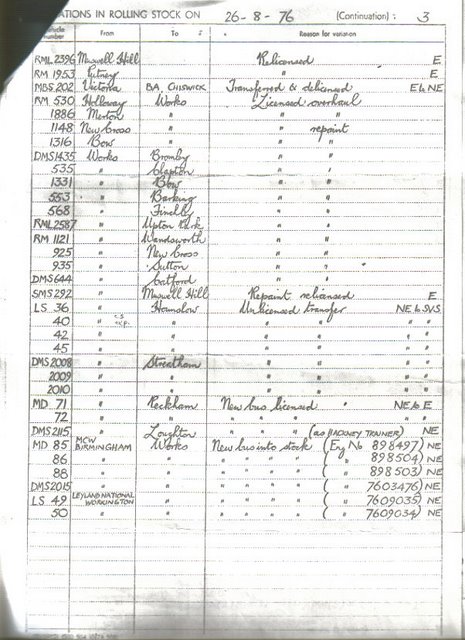 ATIONS IN ROLLING STOCK ON 26-8-76 (Continuation): 3
Vehicle number From To Reason for variation
RML 2396 Muswell Hill Relicensed E
RM 1953 Putney " E
MBS 202 Victoria BA, CHISWICK Transferred & delicensed E to NE
RM 530 Holloway Works Licensed overhaul
1886 Merton " " "
1148 New Cross " " repaint
1316 Bow " " "
DMS 1435 Works Bromley " "
535 " Clapton " "
1331 " Bow " "
553 " Barking " "
568 " Finchley " "
RML 2587 " Upton Park " "
RM 1121 " Wandsworth " "
925 " New Cross " "
935 " Sutton " "
DMS 644 " Catford " "
SMS 292 " Muswell Hill Repaint relicensed E
LS 36 " Hounslow Unlicensed transfer NE to SVS
40 " " " " " "
42 " " " " " "
45 " " " " " "
DMS 2008 " Streatham " " " "
2009 " " " " " "
2010 " " " " " "
MD 71 " Peckham New bus licensed NE to E
72 " " " " " " "
DMS 2115 " Loughton " " " (as HACKNEY TRAINER) NE
MD 85 MCW BIRMINGHAM Works New bus into stock (Eng No 898497) NE
86 " " " " " " ( " 898504) NE
88 " " " " " " ( " 898503) NE
DMS 2015 " " " " " " ( " 7603476) NE
LS 49 LEYLAND NATIONAL WORKINGTON " " " " " ( " 7609035) NE
50 " " " " " " ( " 7609034) NE